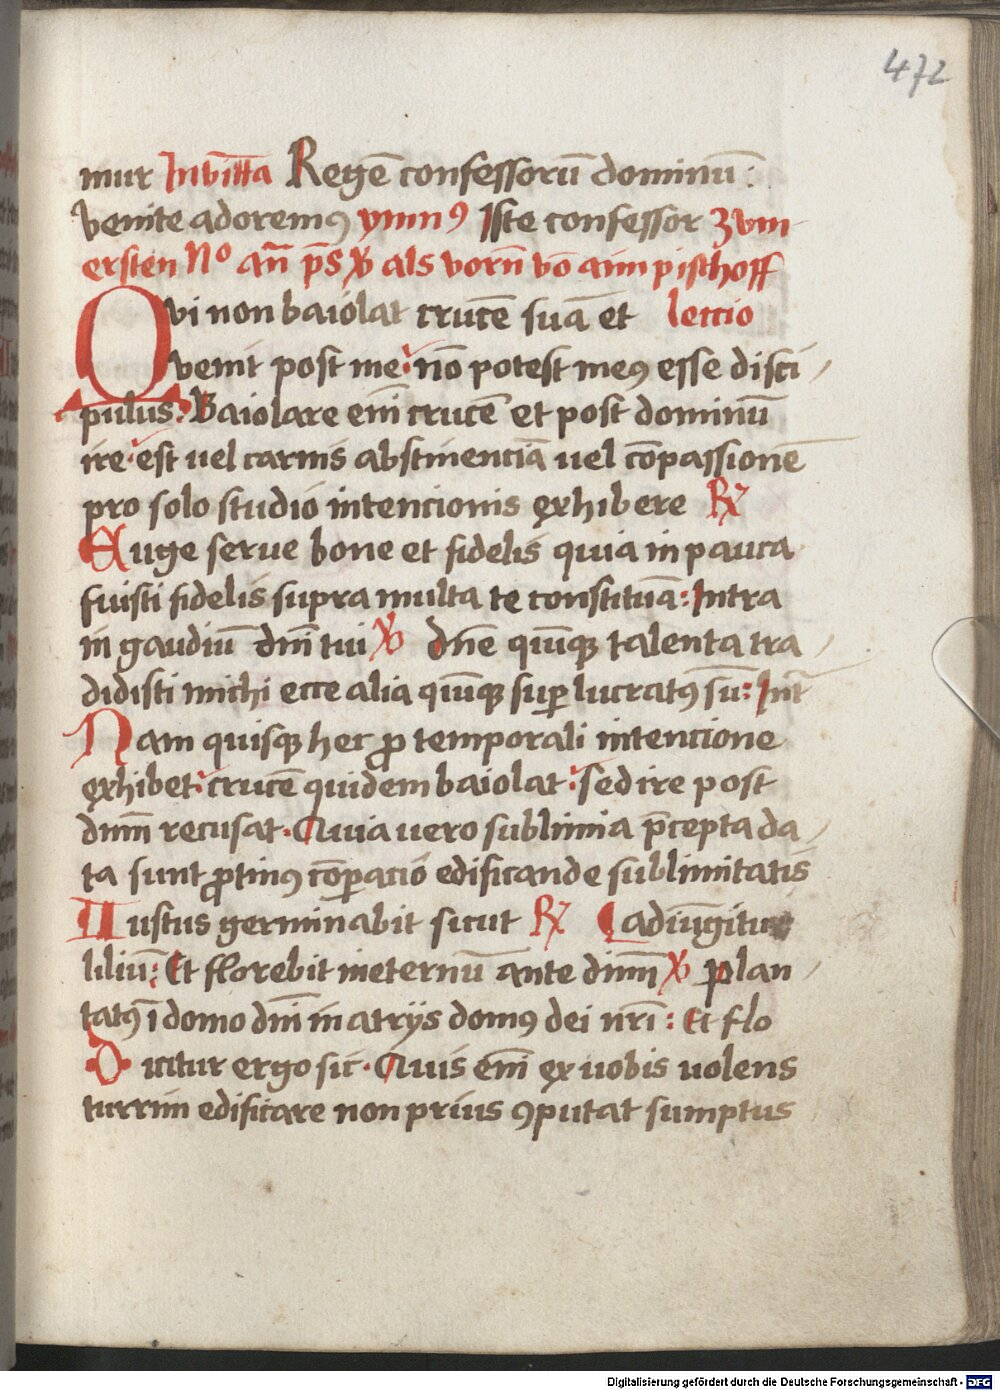 472
mur Invitta Regē confessorū dominū:
venite adoremꝰ ymnꝰ Iste confessor Zum
ersten No an̄ ps̄ ℣ als vorn̄ vō aim pischoff
Qvi non baiolat crucē suā et leccio
venit post me: nō potest meꝰ esse disci
pulus: Baiolare eni̅ crucē et post dominū
ire: est uel carnis abstinenciā uel cōpassionē
pro solo studio intencionis exhibere ℟
Euge serue bone et fidelis quia in pauca
fuisti fidelis supra multa te constituā: Intra
in gaudiū dn̄i tui ℣ dn̄e quiūqꝫ talenta tra
didisti michi ecce alia quiūqꝫ suꝑ lucratꝰ su̅: Int̄
Nam quisqꝫ hec ꝓ temporali intencione
exhibet: crucē quidem baiolat: sed ire post
dnm̄ recusat. Quia uero sublimia p̄cepta da
ta sunt ꝓtinꝰ cōꝑacio edificande sublimitatis
Iustus germinabit sicut ℟ adiūgitur
liliū: Et florebit ineternū ante dnm̄ ℣ plan
tatꝰ ī domo dn̄i in atrijs domꝰ dei nr̄i: Et flo
Dicitur ergo sic. Quis eni̅ ex uobis uolens
turrim edificare non prius ꝯputat sumptus
Digitalisierung gefördert durch die Deutsche Forschungsgemeinschaft - DFG